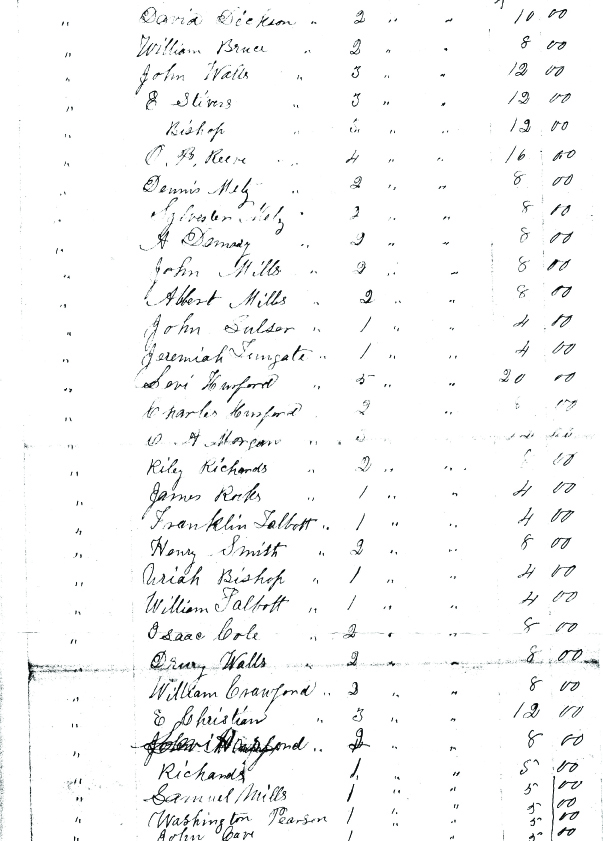 " David Dickson " 2 " " 10 00
" William Bruce " 2 " " 8 00
" John Walls " 3 " " 12 00
" E Stivers " 3 " " 12 00
" Bishop " 3 " " 12 00
" O. B. Reeve " 4 " " 16 00
" Dennis Metz " 2 " " 8 00
" Sylvester Metz " 2 " " 8 00
" A Demsey " 2 " " 8 00
" John Mills " 2 " " 8 00
" Albert Mills " 2 " " 8 00
" John Fulser " 1 " " 4 00
" Jeremiah Tungate " 1 " " 4 00
" Levi Hunford " 5 " " 20 00
" Charles Hunford 2 " 00
" A Morgan "
" Riley Richards " 2 " " 00
" James Rooks " 1 " " 4 00
" Franklin Talbott " 1 " " 4 00
" Henry Smith " 2 " " 8 00
" Uriah Bishop " 1 " " 4 00
" William Talbott " 1 " " 4 00
" Isaac Cole " 2 " " 8 00
" Drury Walls " 2 " " 8 00
" William Crawford " 2 " " 8 00
" E Christian " 3 " " 12 00
" " 2 " " 8 00
" Richards 1 " " 5 00
" Samuel Mills 1 " " 5 00
" Washington Pearson 1 " " 5 00
" John Cave 1 " " 5 00